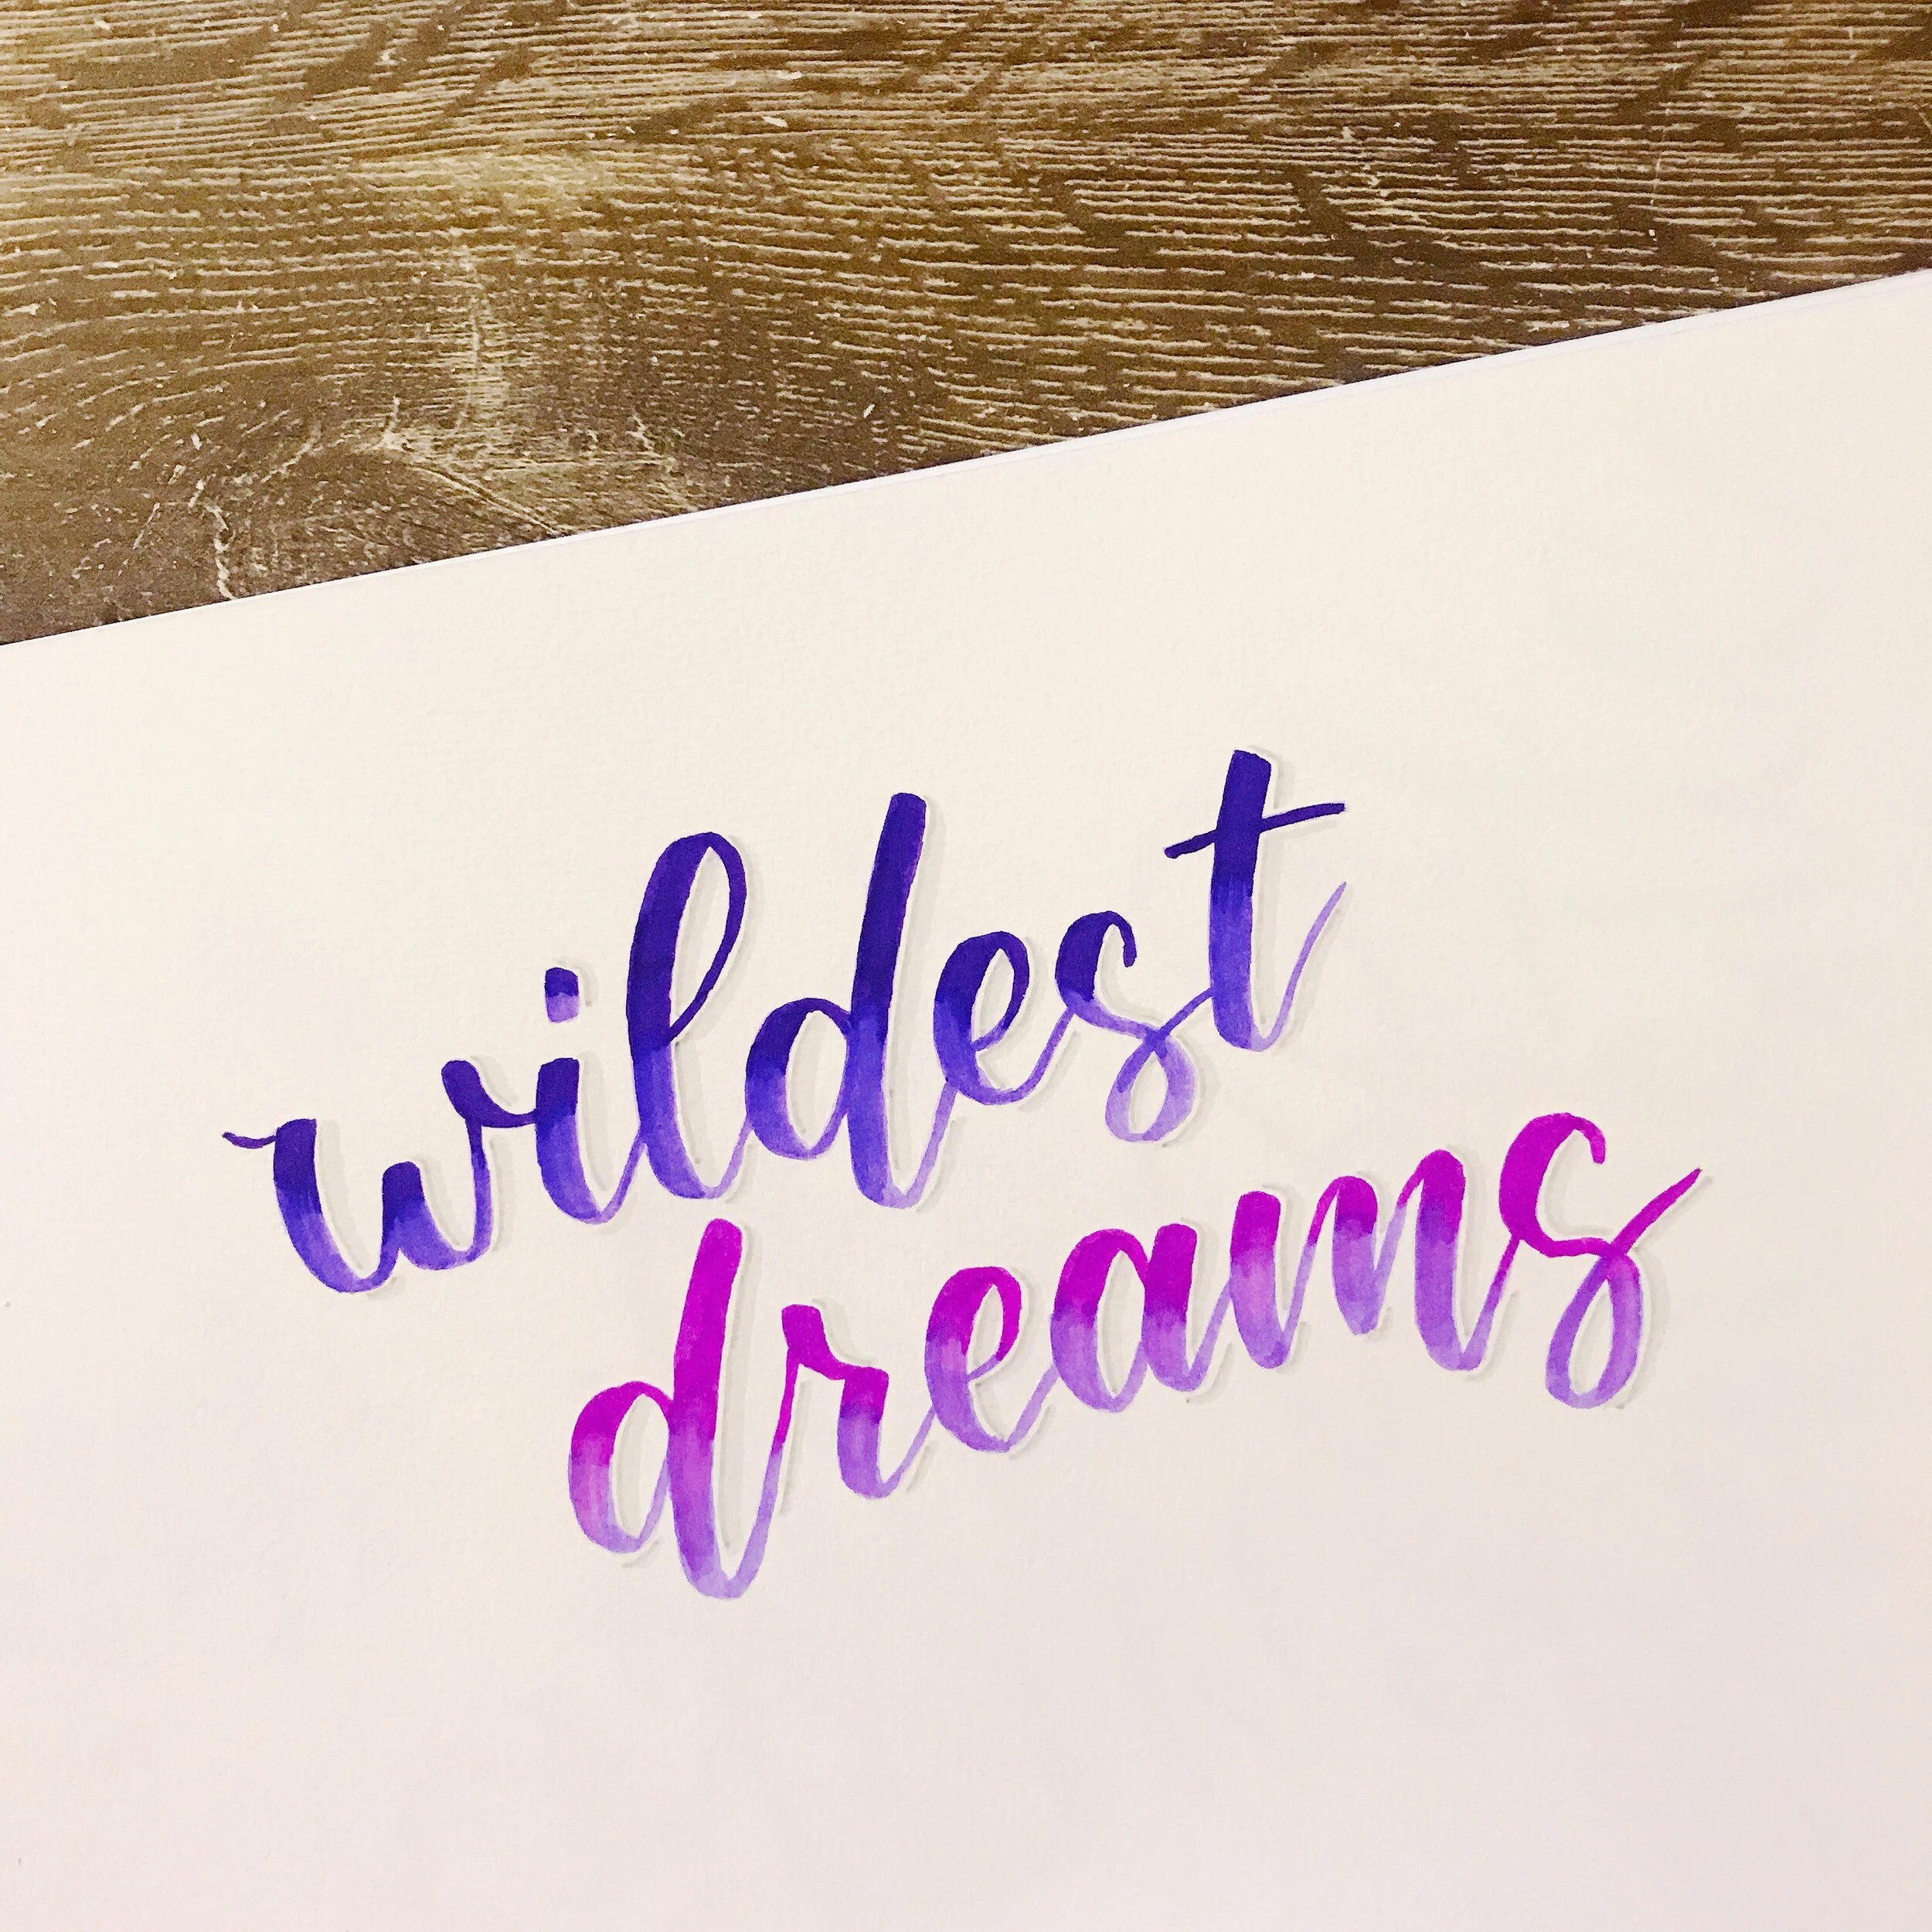 wildest
dreams